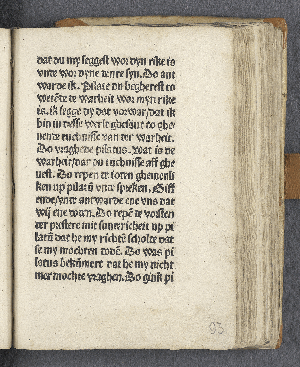 dat du my seggest wor dyn rike is
vnde wor dyne denre syn. Do ant
warde ik. Pilate du begherest to
wetēde de warheit wor myn rike
is. ik segge dy dat vorwar/dat ik
bin in desse werlt ghesant to ghe
uende tuchnisse van der warheit.
Do vraghede pilatus. wat is de
warheit/dar du tuchnisse aff ghe
uest. Do repen de ioden ghemenli
ken up pilatū vnde spreken.
ende/vnde antwarde ene vns dat
wy ene doen. Do repē de vorsten
der prestere mit sunricheit up pi
latū dat he my richtē scholde dat
se my mochten dodē. Do was pi
latus bekūmert dat he my nicht
mer mochte vraghen. Do gink pi
93